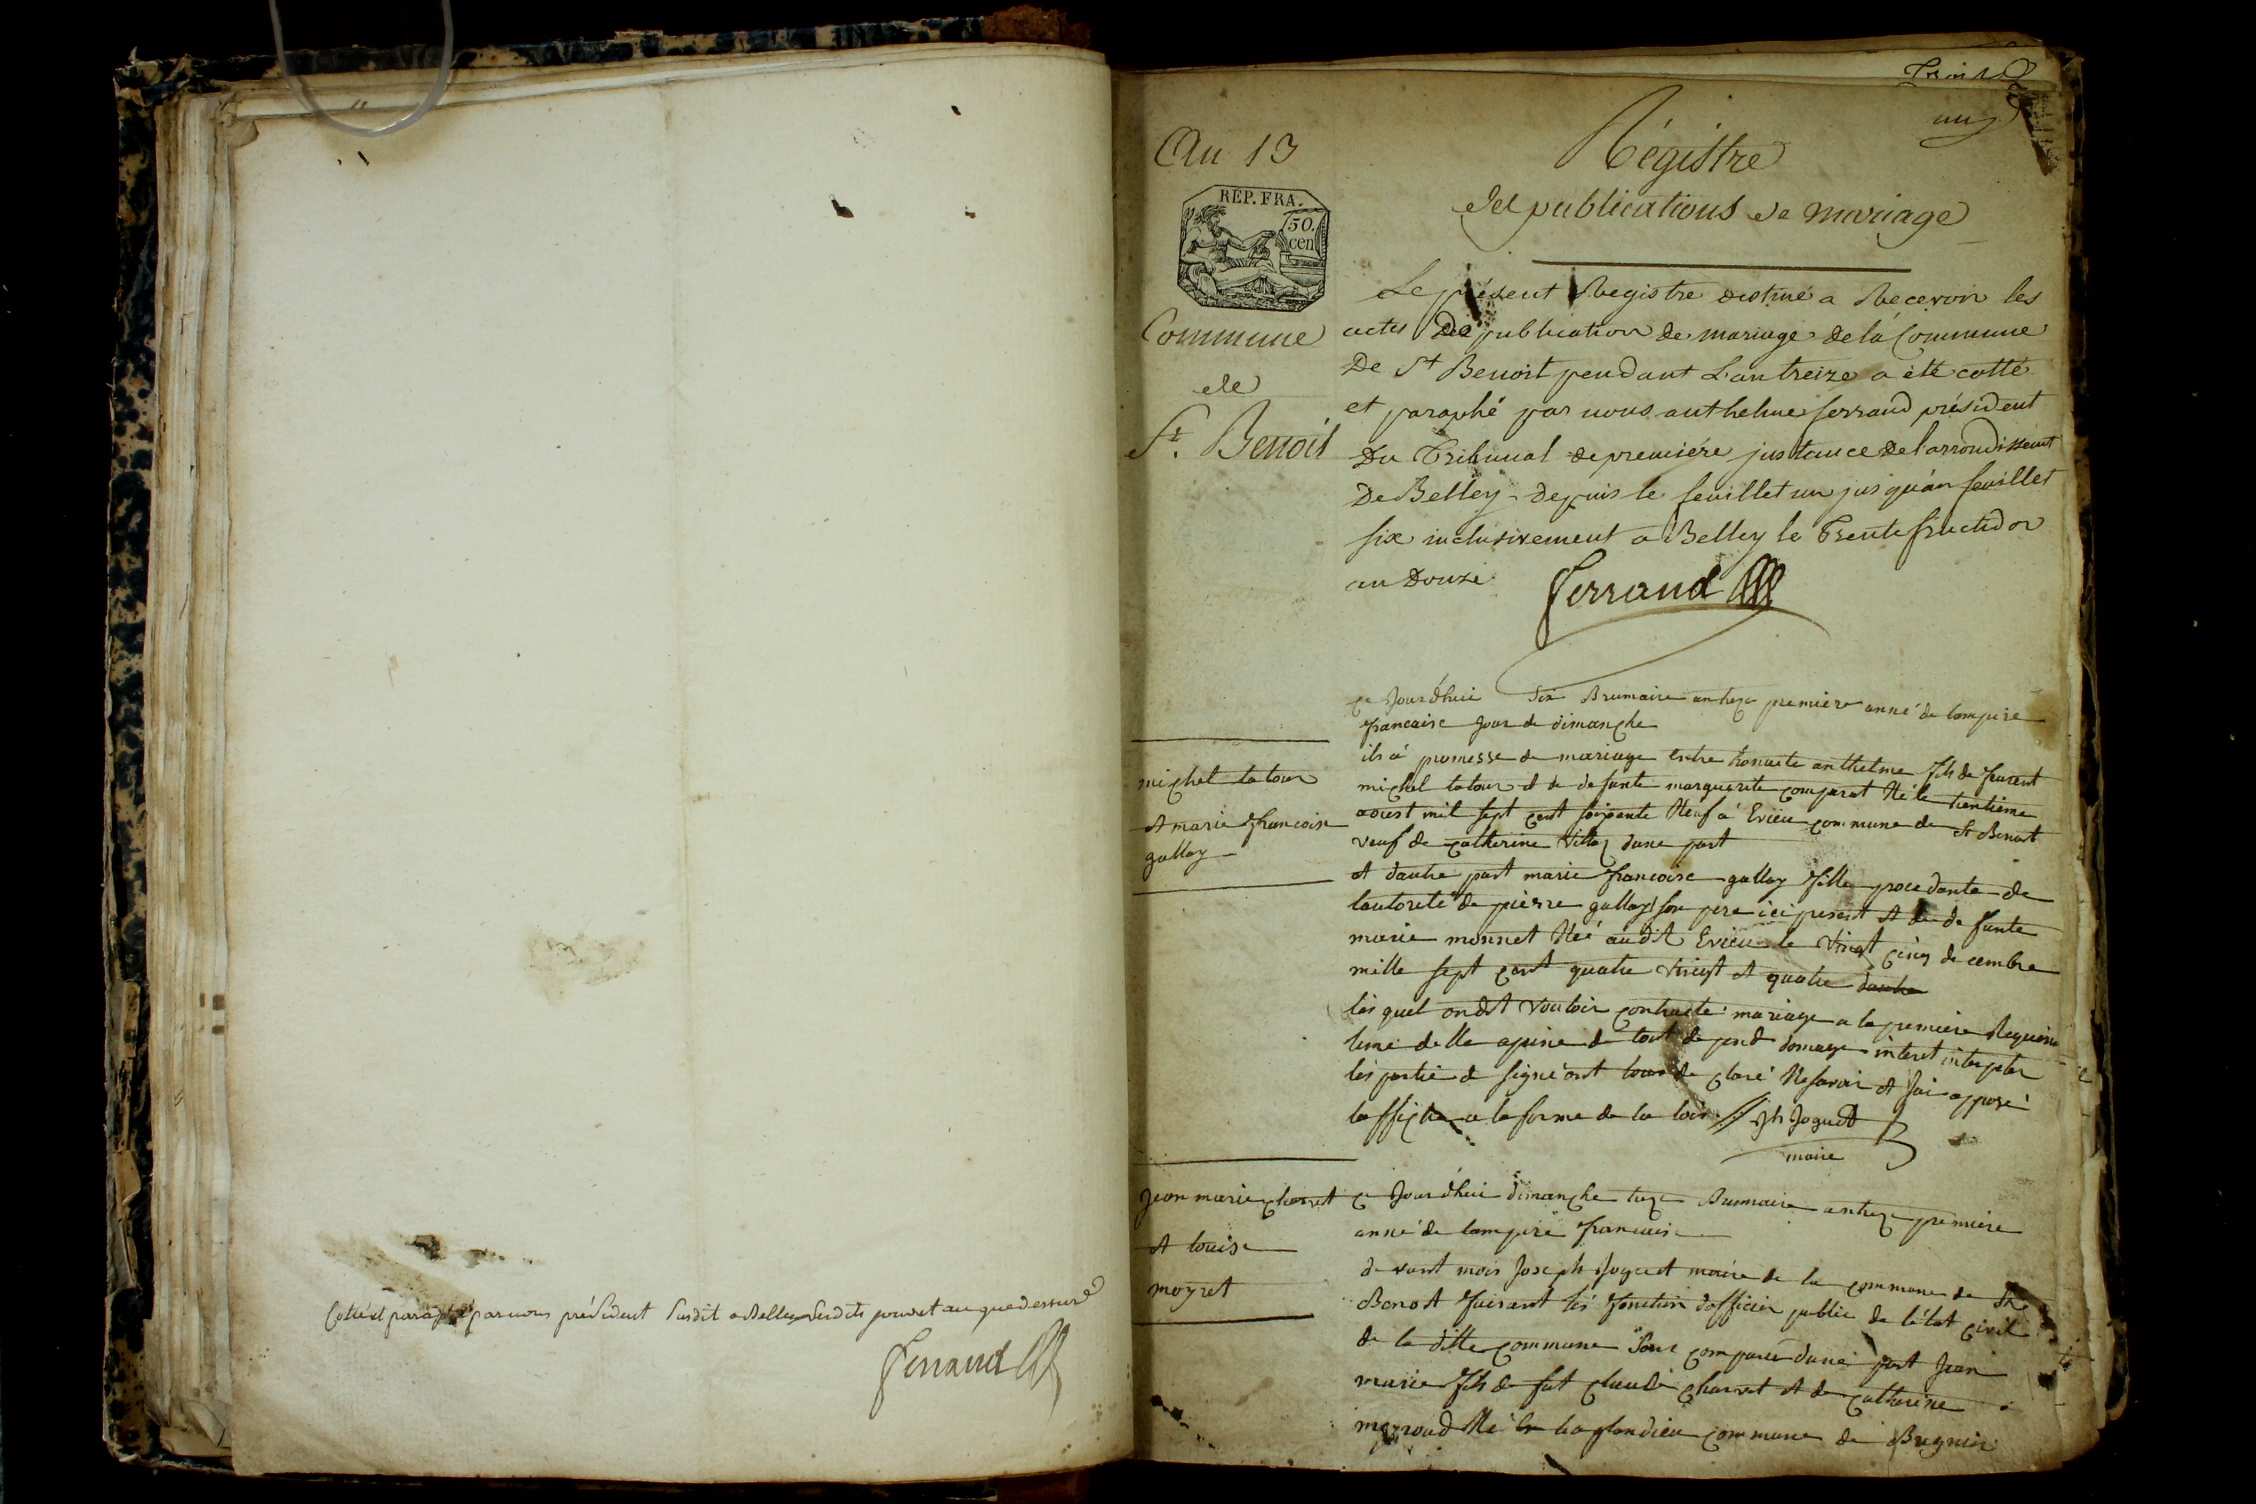 Cotté et paraphé par nous président susdit a Belley lesdits jour et an que dessus
Ferrand
un
An 13
REP. FRA.
50.
cen
Commune
de
St. Benoit
Régistre
des publications de mariage
Le présent Registre destiné a Recevoir les
actes De publication de mariage de la Commune
De St Benoit pendant L'an treize a été cotté
et paraphé par nous anthelme ferrand président
Du Tribunal de premiére justance de l'arrondissemt
De Belley depuis le feuillet un jusqu'au feuillet
six inclusivement a Belley le Trente fructidor
an Douze
Ferrand
michel latour
et marie francoise
gallay
ce Jourdhui six Brumaire an treze premiere anné de lempire
francaise jour de dimanche
ils á promesse de mariage entre honneste anthelme fils de feurent
michel latour et de defunte marguerite comparat Né le trentieme
aoust mil sept cent soixante Neuf á Evieu commune de St Benoit
veuf de catherine Villaz dune part
et dautre part marie francoise gallay fille procedante de
lautorité de pierre gallay son pere ici present et de defunte
marie monnet Née audit Evieu le vingt cinq decembre
mille sept cent quatre vingt et quatre
les quel ondit vouloir contracté mariage a la premiere Requisi
temi delle a peine de tout depend domage interet interpeler
les partie de signé ont de claré Ne savoir et jai apposé
laffiche a la forme de la loix // Jh Joguet
maire
Jean marie charvet
et louise
moyret
ce Jourdhui dimanche treze Brumaire an treze premiere
anné de lempire francaise
devant mois Joseph Joguet maire de la commune de St
Benoit faisant les fonction dofficier public de létat civil
de la ditte commune sont comparu dune part Jean
marie fils de fut claude charvet et de catherine
meyroud Né la glandieu commune de Bregnier